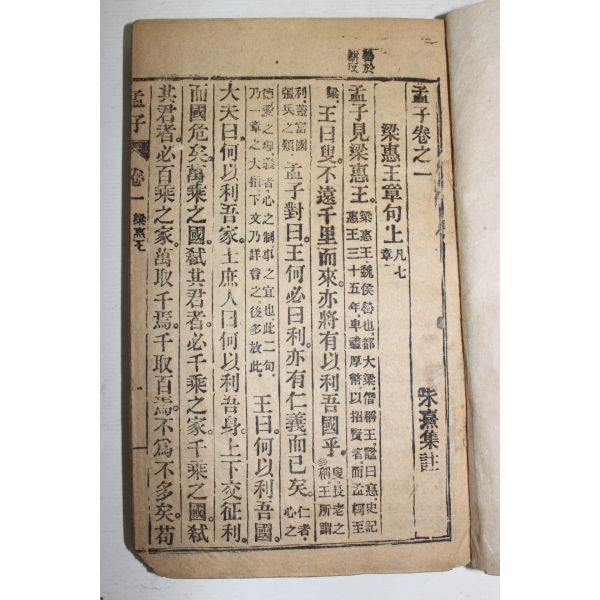 孟子卷之一
朱熹集註
梁惠王章句上
凡七
章
孟子見梁惠王。
梁惠王魏侯罃也都大梁僭稱王謚曰惠史記
惠王三十五年卑禮厚幣以招賢者而孟軻至
梁
王曰叟不遠千里而來亦將有以利吾國乎。
叟長老之
稱王所謂
利蓋富國
彊兵之類
孟子對曰王何必曰利亦有仁義而已矣。
仁者
心之
德愛之理義者心之制事之宜也此二句
乃一章之大指下文乃詳言之後多放此
王曰何以利吾國。
大夫曰何以利吾家。士庶人曰何以利吾身。上下交征利。
而國危矣。萬乘之國。弒其君者。必千乘之家。千乘之國。弒
其君者。必百乘之家。萬取千焉。千取百焉。不爲不多矣。苟
孟子
卷一
梁惠王
一